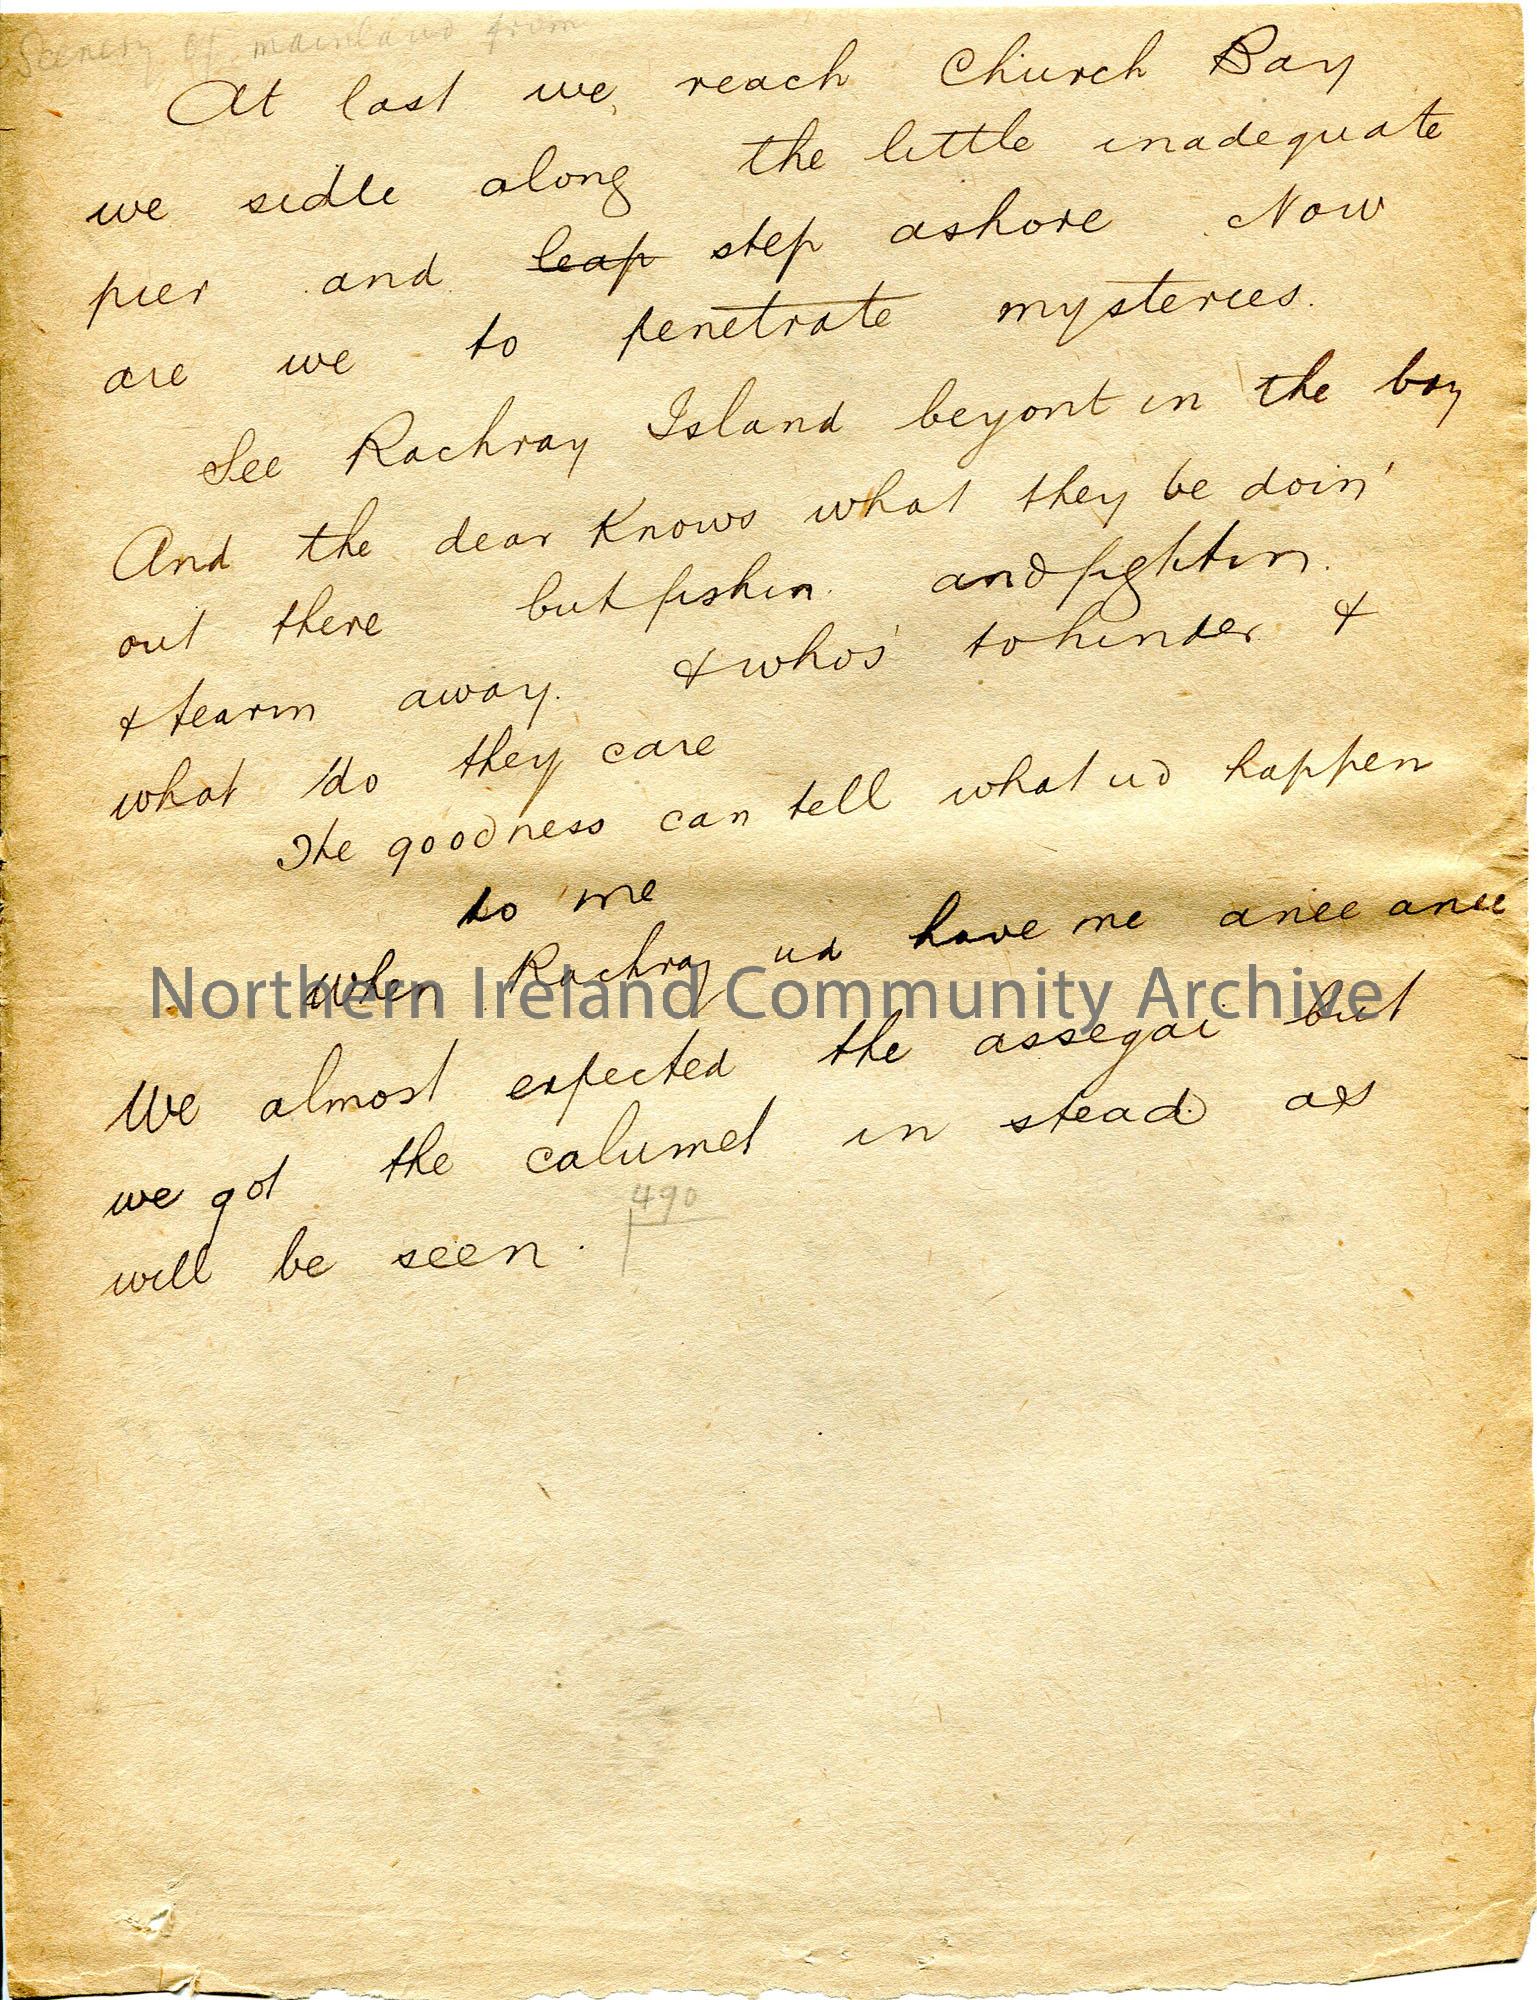 Scenery of mainland from
At last we reach Church Bay
we sidle along the little inadequate
pier and leap step ashore Now
are we to penetrate mysteries.
See Rachray Island beyont in the bay
And the dear knows what they be doin'
out there but fishin and fightin.
& tearin away. & who's to hinder &
what do they care
The goodness can tell what ud happen
to me
When Rachray ud have me anee anee
Northern Ireland Community Archive
We almost expected the assegai but
we got the calumet in stead as
will be seen.
490